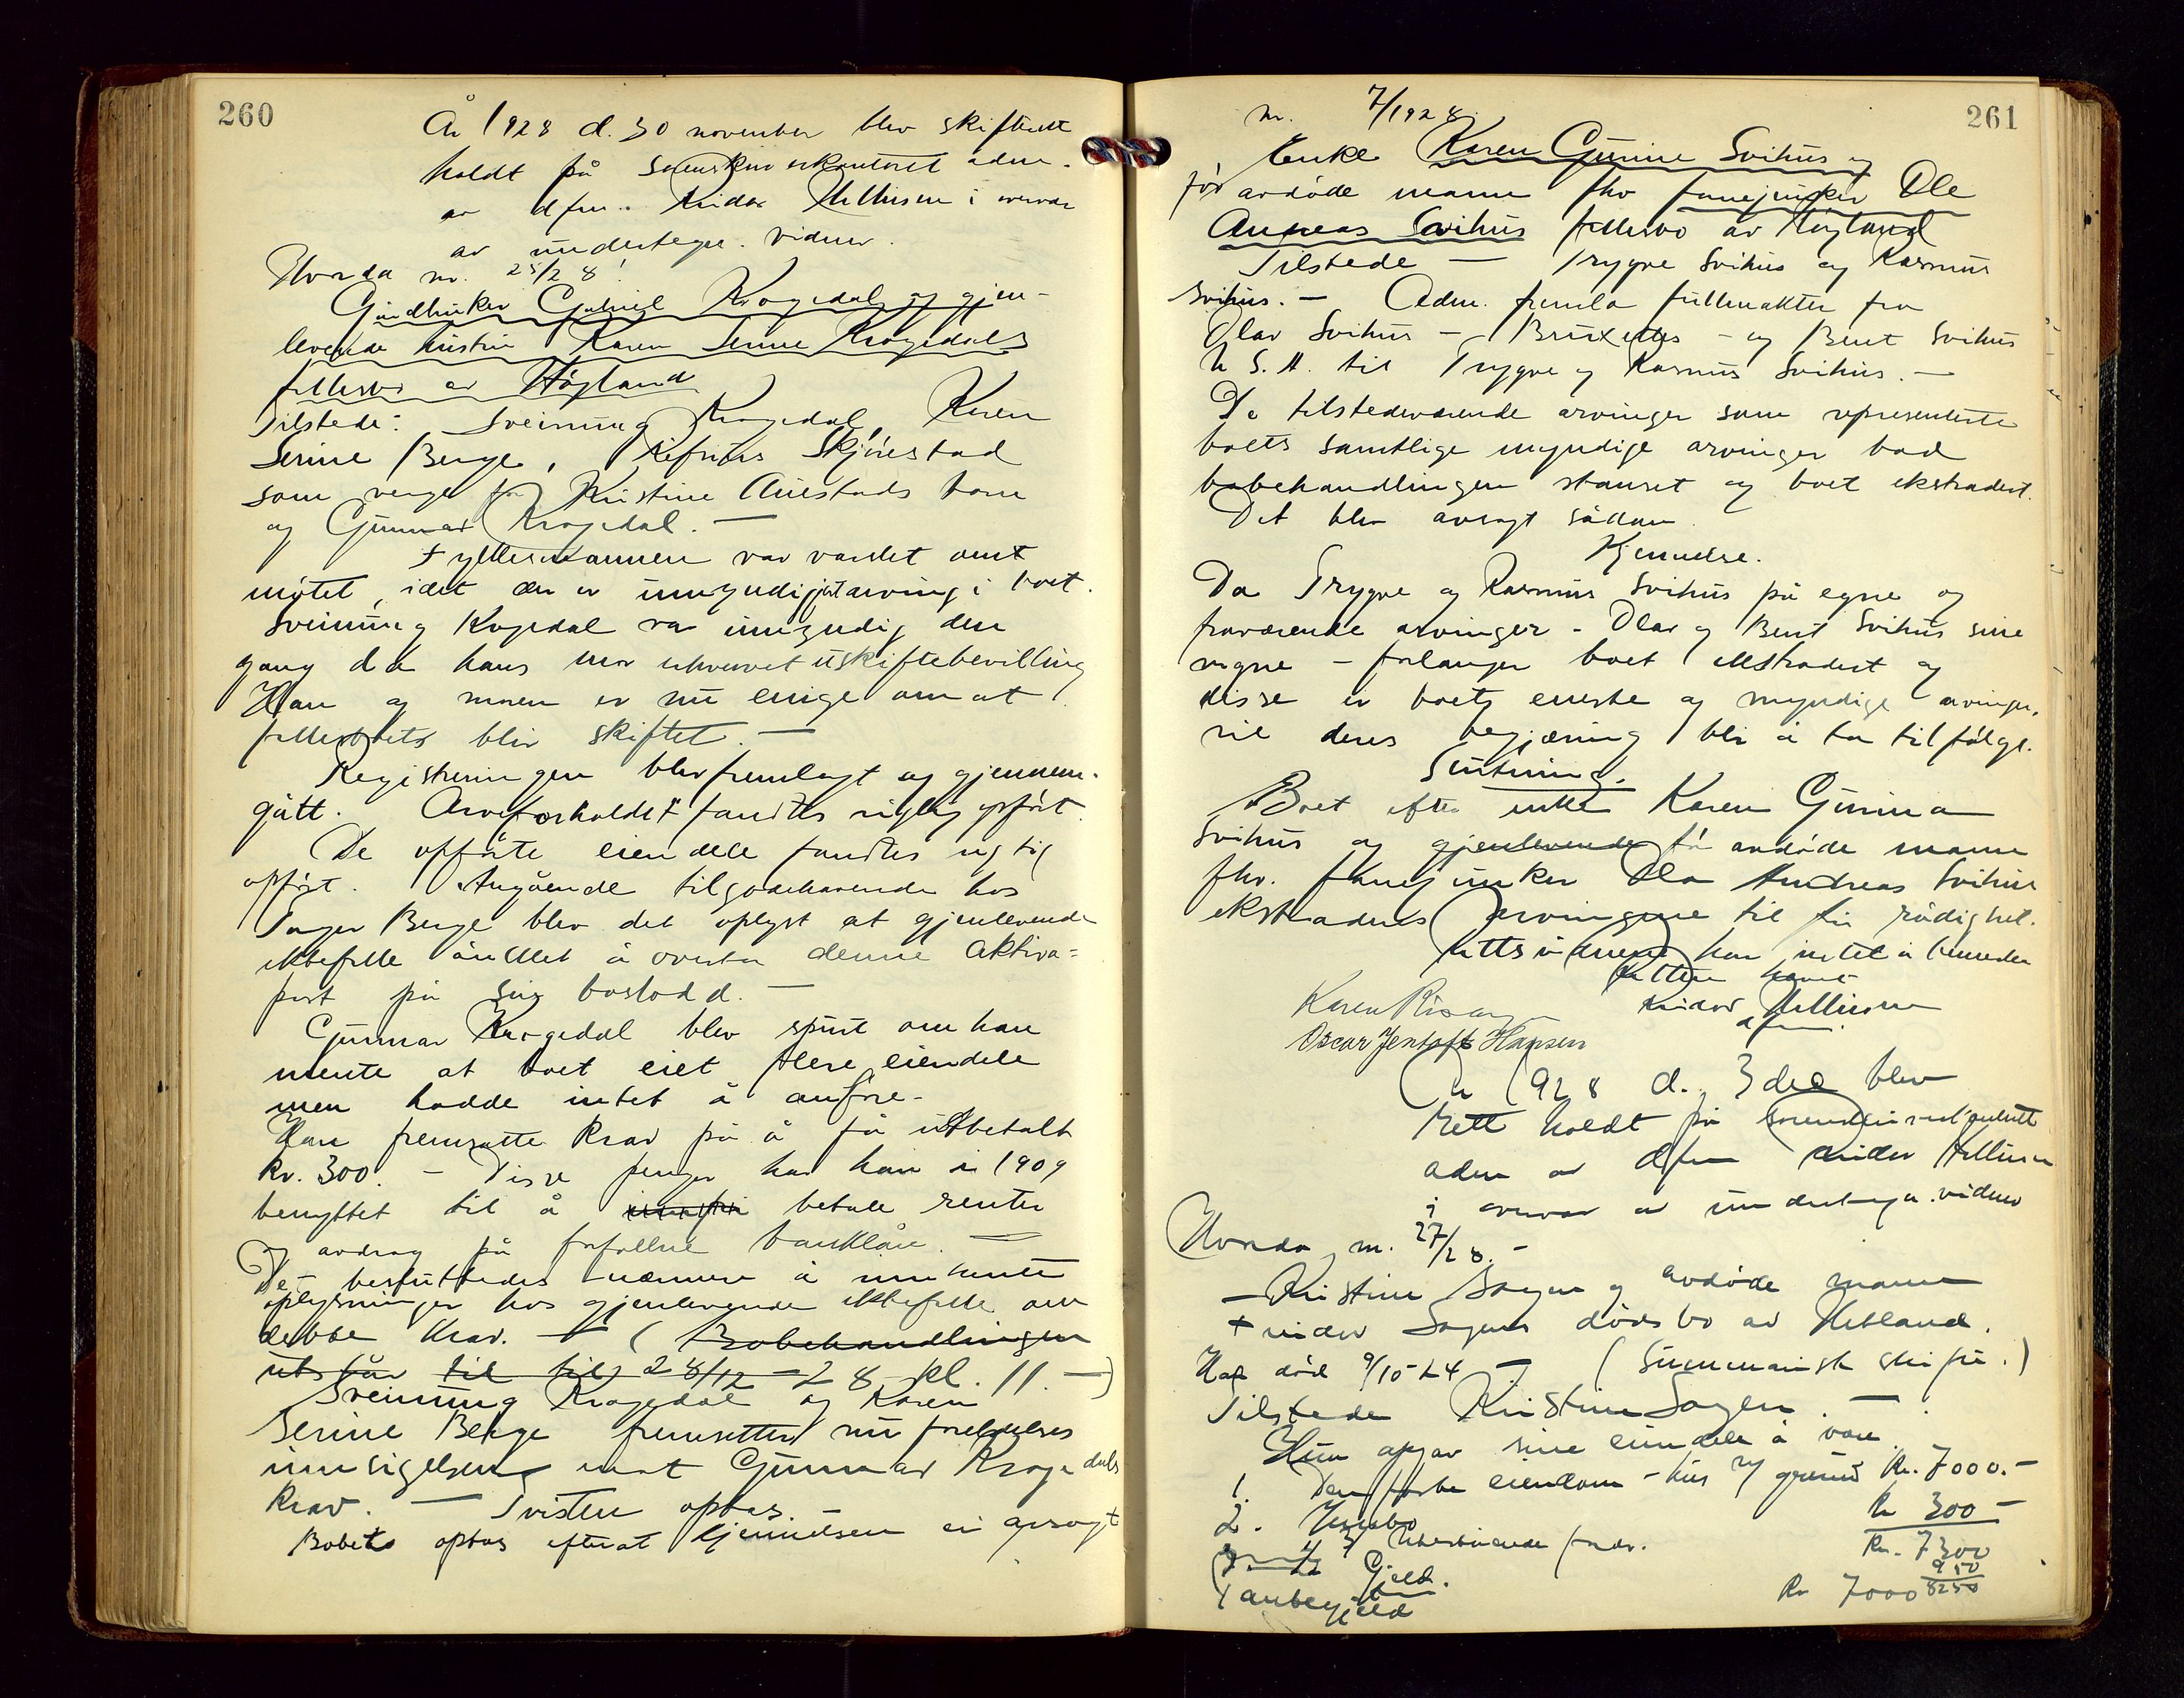 260
År 1928 d. 30 november blev skifterett
holdt på sorenskriverkontoret adm.
av dfm. Reidar Mellusen i overvær
av undertegn. vidner.
Hvorda nr. 25/28:
Gårdbruker Gabriel Krogedal og gjen-
levende hustru Karen Serine Krogedals
fellesbo av Høyland
Tilstede: Sveinung Krogedal, Karen
Serine Berge, Skjørestad
som verge for Kristine Auestads barn
og Gunnar Krogedal. —
Fyllesmannen var varslet om
møtet, idet der er umyndig arving i boet.
Sveinung Krogedal var umyndig den
gang da hans mor erhvervet uskiftebevilling
Han og moren er nu enige om at
fellesboets blir skiftet. —
Registreringen blev fremlagt og gjennem-
gått. Arveforholdet fandtes riktig opført.
De opførte eiendele fandtes rigtig
opført. Angående tilgodehavende hos
Berge blev det oplyst at gjenlevende
ektefelle ønsket å overta denne aktiva-
post på sin boslodd. —
Gunnar Krogedal blev spurt om han
mente at boet eiet flere eiendele
men hadde intet å anføre.
Han fremsatte krav på å få utbetalt
kr. 300. — Disse penger har han i 1909
benyttet til å betale renter
og avdrag på forfallne banklån. —
Det besluttedes nærmere å innhente
oplysninger hos gjenlevende ektefelle om
dette krav. — (Bobehandlingen
utstår til til 28/12 - 28 kl. 11. —)
Sveinung Krogedal og Karen
Serine Berge fremsetter nu foreløbig
innsigelse mot Gunnar Krogedals
krav. — Tvisten optas. —
Bobeh. optas efterat kjennelsen er avsagt
261
nr. 7/1928.
Enke Karen Gurine Svihus og
før avdøde mann fhv fanejunker Ole
Andreas Svihus fellesbo av Høyland
Tilstede — Trygve Svihus og Rasmus
Svihus. — Adm. fremla fullmakter fra
Olav Svihus — Bruxelles — og Bent Svihus
U S. A. til Trygve og Rasmus Svihus. —
De tilstedeværende arvinger som representerte
boets samtlige myndige arvinger bad
bobehandlingen stanset og boet ekstradert.
Det blev avsagt sådan
Kjennelse.
Da Trygve og Rasmus Svihus på egne og
fraværende arvinger - Olav og Bent Svihus sine
vegne — forlanger boet ekstradert og
disse er boets eneste og myndige arvinger,
vil deres begjæring bli å ta tilfølge.
Slutning.
Boet efter enke Karen Gurina
Svihus og gjenlevende før avdøde mann
fhv. fanejunker Ole Andreas Svihus
ekstraderes arvingene til fri rådighet.
Rettsvidnene har intet å bemerke
Retten hevet
Reidar Mellusen
dfm.
Karen Risa
Oscar Jentoft Hansen
År 1928 d. 3 des blev
rett holdt på sorenskriverkontoret
adm av dfm Reidar Mellusen
i overvær av undertegn. vidner
Hvorda nr. 27/28. —
Kristine Sagen og avdøde mann
Sagens dødsbo av Hetland.
Han død 9/10-24 — (Summarisk skifte.)
Tilstede Kristine Sagen. —
Hun opgav sine eiendele å være
1. Den faste eiendom - hus m/ grunn Kr. 7000.—
2. Innbo Kr 300 —
Kr. 7300
3. Utestående fordr. 950
8250
Gjeld.
1 Pantegjeld Kr 7000